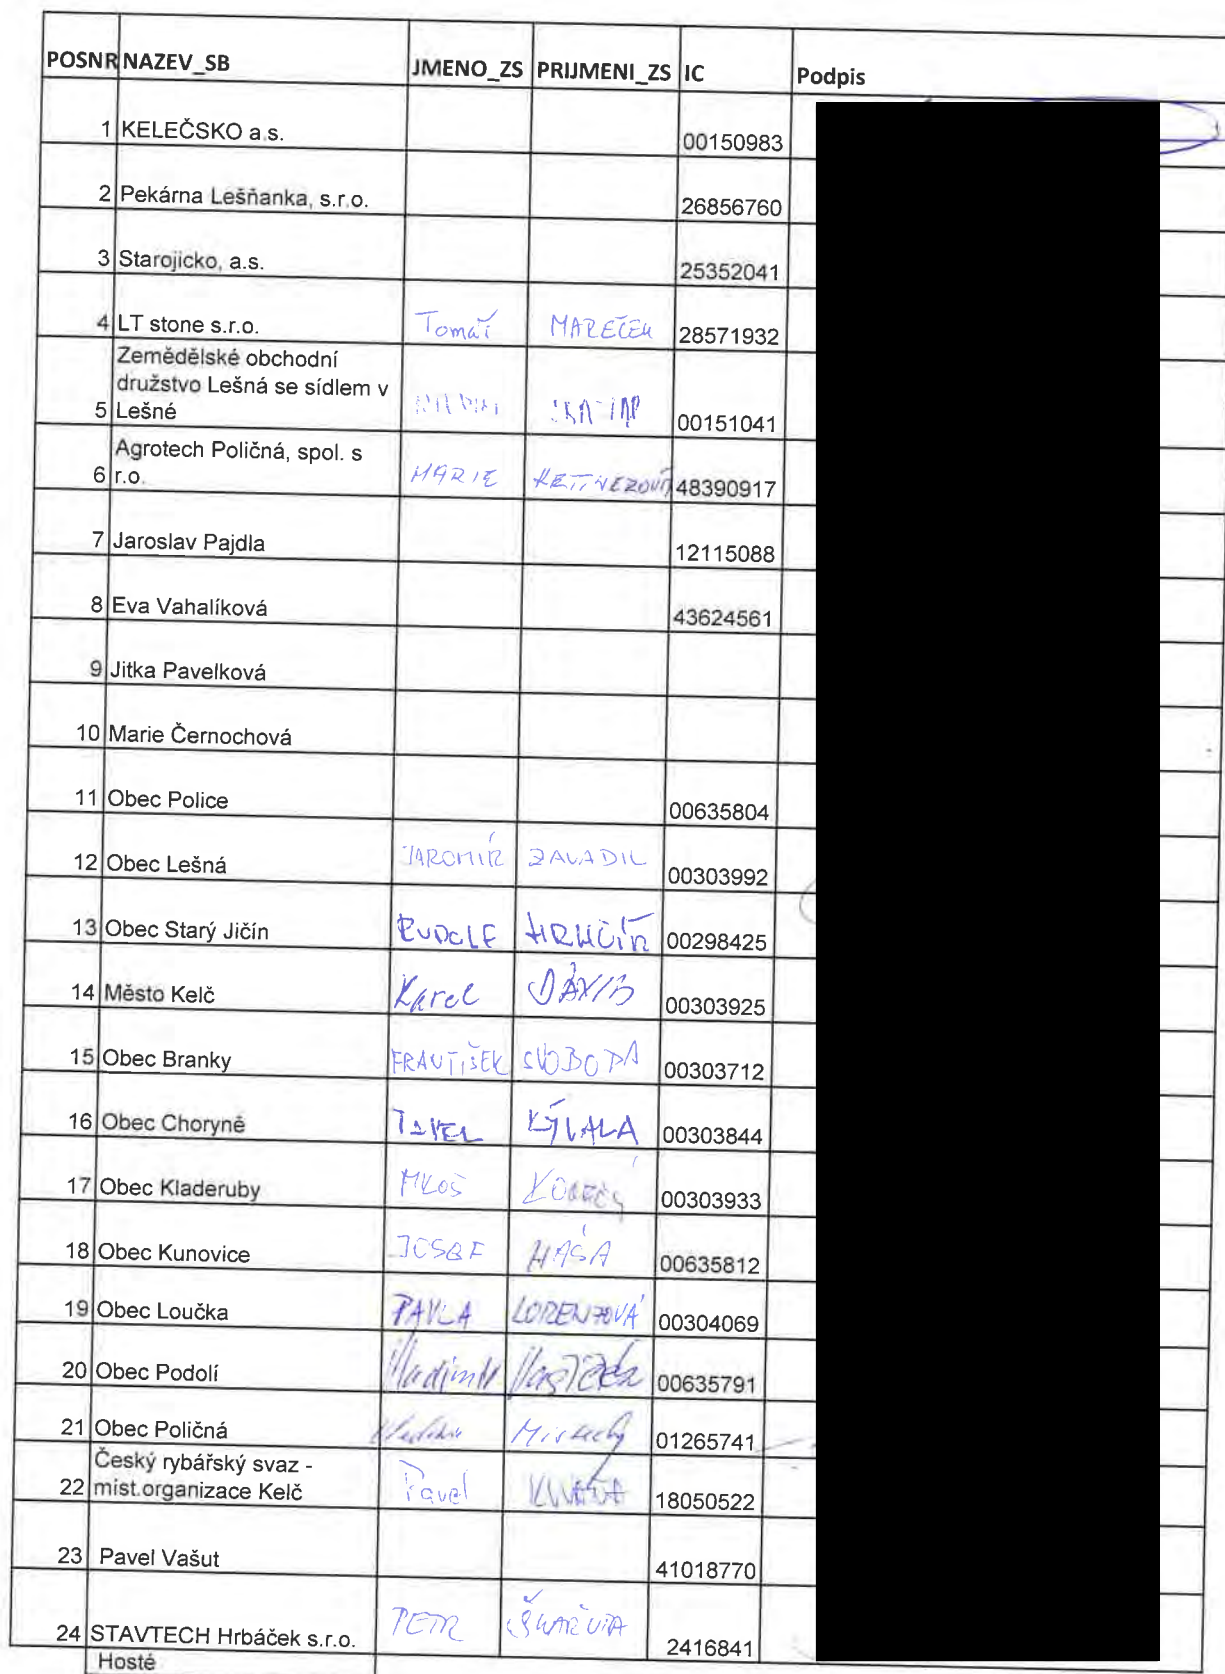 POSNR NAZEV_SB JMENO_ZS PRIJMENI_ZS IC Podpis
1 KELEČSKO a.s. 00150983
2 Pekárna Lešňanka, s.r.o. 26856760
3 Starojicko, a.s. 25352041
4 LT stone s.r.o. Tomáš MAREČEK 28571932
Zemědělské obchodní
družstvo Lešná se sídlem v
5 Lešné 00151041
Agrotech Poličná, spol. s
6 r.o. MARIE 48390917
7 Jaroslav Pajdla 12115088
8 Eva Vahalíková 43624561
9 Jitka Pavelková
10 Marie Černochová
11 Obec Police 00635804
12 Obec Lešná JAROMÍR ZAVADIL 00303992
13 Obec Starý Jičín RUDOLF 00298425
14 Město Kelč Karel DAVID 00303925
15 Obec Branky FRANTIŠEK SVOBODA 00303712
16 Obec Choryně PAVEL KÝVALA 00303844
17 Obec Kladeruby 00303933
18 Obec Kunovice JOSEF HÁŠA 00635812
19 Obec Loučka PAVLA LORENZOVÁ 00304069
20 Obec Podolí Vladimír 00635791
21 Obec Poličná 01265741
Český rybářský svaz -
22 míst.organizace Kelč Pavel 18050522
23 Pavel Vašut 41018770
24 STAVTECH Hrbáček s.r.o. PETR 2416841
Hosté